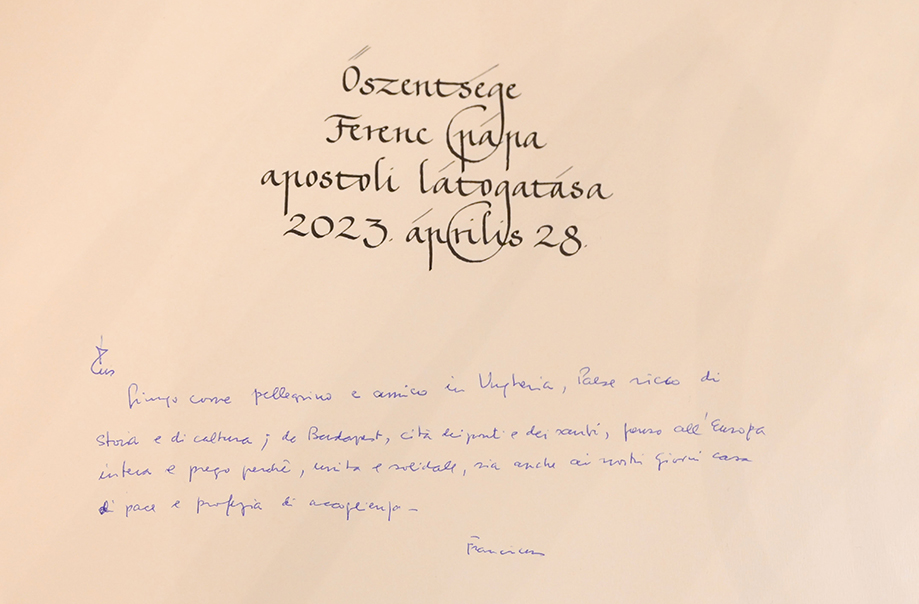 Őszentsége
Ferenc pápa
apostoli látogatása
2023. április 28.
Giungo come pellegrino e amico in Ungheria, Paese ricco di
storia e di cultura; da Budapest, città dei ponti e dei santi, penso all'Europa
intera e prego perché, unita e solidale, sia anche ai nostri giorni casa
di pace e profezia di accoglienza –
Franciscus